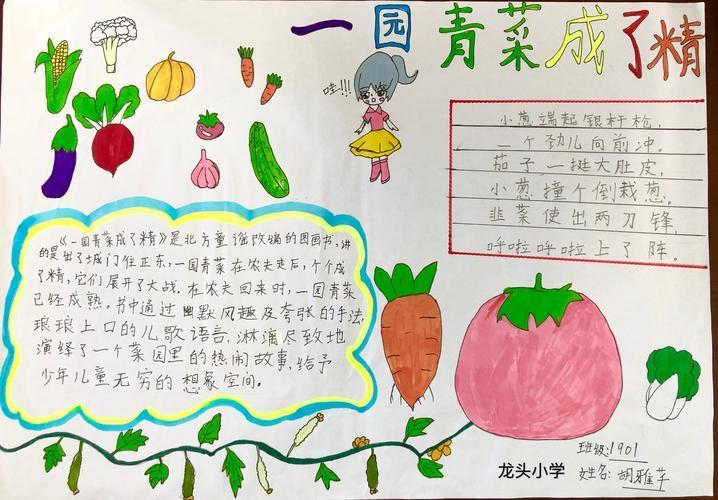 一园青菜成了精
哇!!!
小葱端起银杆枪,
一个劲儿向前冲。
茄子一挺大肚皮,
小葱撞个倒栽葱。
韭菜使出两刃锋,
呼啦呼啦上了阵。
《一园青菜成了精》是北方童谣改编的图画书,讲
的是出了城门往正东,一园青菜在农夫走后,个个成
了精,它们展开了大战.在农夫回来时,一园青菜
已经成熟。书中通过幽默风趣及夸张的手法,
琅琅上口的儿歌语言,淋漓尽致地
演绎了一个菜园里的热闹故事,给予
少年儿童无穷的想象空间。
班级:1901
龙头小学 姓名:胡雅芊